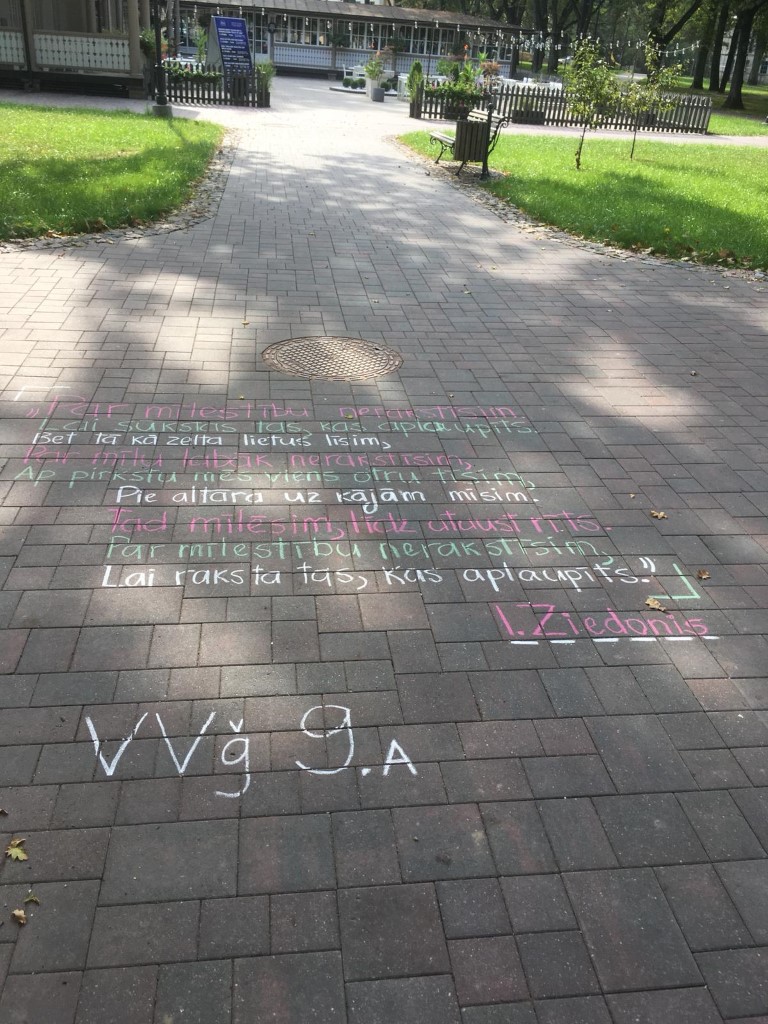 „Par mīlestību nerakstīsim.
Lai sūkstās tas, kas aplaupīts.
Bet tā kā zelta lietus līsim,
Par mīlu labāk nerakstīsim,
Ap pirkstu mēs viens otru tīsim,
Pie altāra uz kājām mīsim.
Tad mīlēsim, līdz ataust rīts.
Par mīlestību nerakstīsim,
Lai raksta tas, kas aplaupīts."
I. Ziedonis
VVģ 9.A